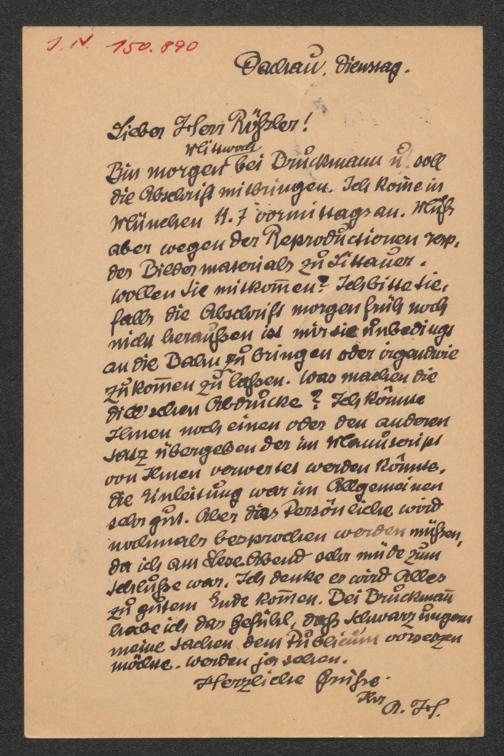 I.N. 150.890
Dachau, Dienstag.
Lieber Herr Rößler!
Mittwoch
Bin morgen bei Bruckmann u. soll
die Abschrift mitbringen. Ich kom̅e in
München 11.7 vormittags an. Muß
aber wegen der Reproductionen resp.
des Bildermaterials zu Littauer.
wollen Sie mitkom̅en? Ich bitte Sie,
falls die Abschrift morgen früh noch
nicht heraußen ist mir sie unbedingt
an die Bahn zu bringen oder irgendwie
zukom̅en zu laßen. Was machen die
die schen Abdrucke? Ich könnte
Ihnen noch einen oder den anderen
Satz übergeben der im Manuscript
von Ihnen verwertet werden könnte.
die Einleitung war im Allgemeinen
sehr gut. Aber das Persönliche wird
nochmals besprochen werden müßen,
da ich am Lese Abend sehr müde zum
Schluße war. Ich denke es wird Alles
zu gutem Ende kom̅en. Bei Bruckman̅
habe ich das Gefühl, daß Schwarz ungern
meine Sachen dem Publicum vorsetzen
möchte. werden ja sehen.
Herzliche Grüße.
Ihr
A. H.